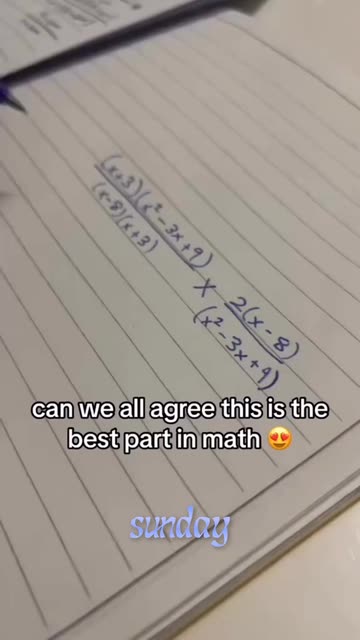 (x+3)(x²-3x+9)
(x-8)(x+3)
x
2(x-8)
(x²-3x+9)
can we all agree this is the
best part in math 😍
sunday